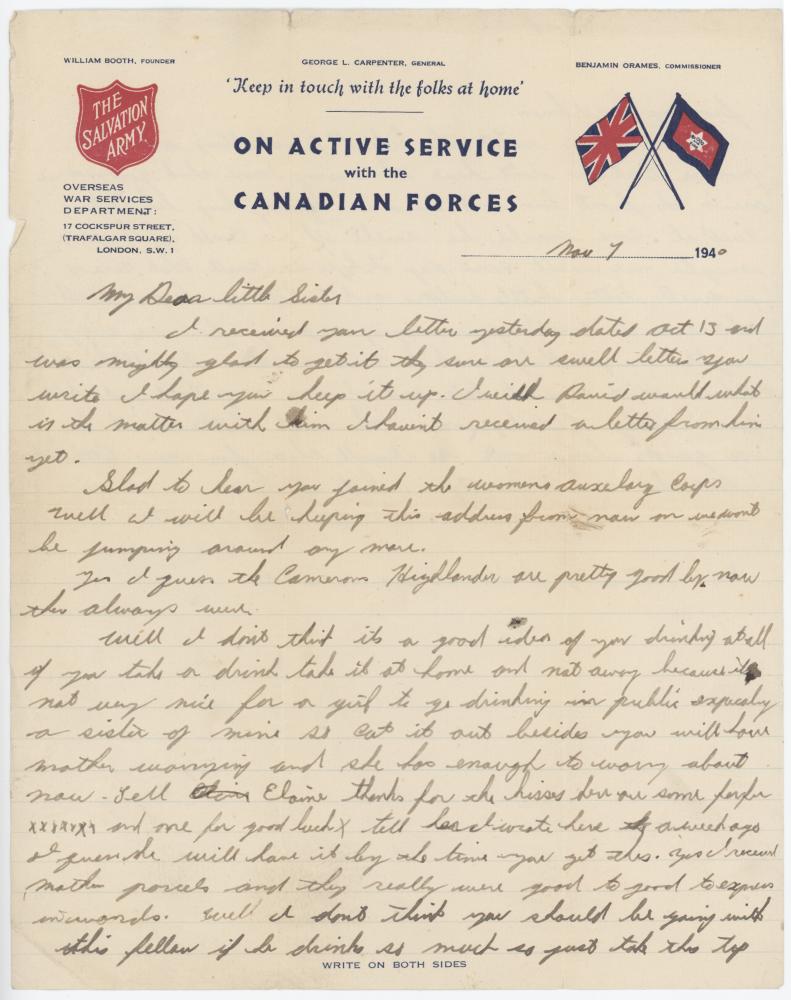 WILLIAM BOOTH, FOUNDER
GEORGE L. CARPENTER, GENERAL
BENJAMIN ORAMES, COMMISSIONER
'Keep in touch with the folks at home'
THE
SALVATION
ARMY
ON ACTIVE SERVICE
with the
CANADIAN FORCES
OVERSEAS
WAR SERVICES
DEPARTMENT:
17 COCKSPUR STREET,
(TRAFALGAR SQUARE),
LONDON, S.W.1
Nov 7 1940
My Dear little Sister
I received your letter yesterday dated Oct 13 and
was mighty glad to get it they sure are swell letters you
write I hope you keep it up. I wish David would what
is the matter with him I havent received a letter from him
yet.
Glad to hear you joined the womens auxelary Corps
well I will be keeping this address from now on we wont
be jumping around any more.
Yes I guess the Camerons Highlander are pretty good by now
they always were.
Well I dont think its a good idea of you drinking at all
if you take a drink take it at home and not away because its
not very nice for a girl to go drinking in public especialy
a sister of mine so cut it out besides you will have
mother worrying and she has enough to worry about
now. Tell Elaine thanks for the kisses here are some for her
xxxxxxx and one for good luck X tell her I wrote here a week ago
I guess she will have it by the time you get this. Yes I received
mother parcels and they really were good to good to express
in words. Well I dont think you should be going with
this fellow if he drinks so much so just take this tip
WRITE ON BOTH SIDES